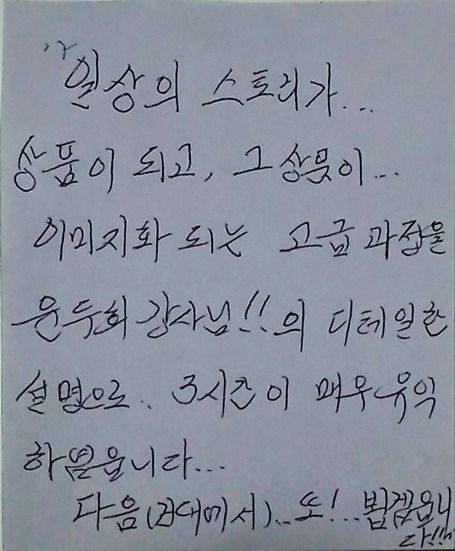 "일상의 스토리가...
상품이 되고, 그 상품이...
이미지화 되는 고급과정을
윤두희강사님!!의 디테일한
설명으로. 3시간이 매우유익
하였읍니다...
다음(강대에서)..또!..뵙겠읍니
다!!"